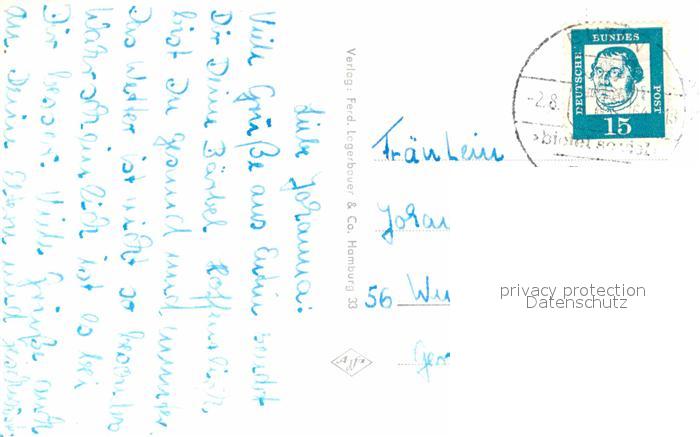 Liebe Johanna!
Viele Grüße aus Eutin sendet
Dir Deine Bärbel. Hoffentlich
bist Du gesund und munter.
Das Wetter ist nicht so besonders
Wahrscheinlich ist es bei
Dir besser. Viele Grüße auch
an Deine Eltern und
Verlag: Ferd. Lagerbauer & Co. Hamburg 33
Fräulein
Johan
56 Wu
DEUTSCHE
BUNDES
POST
15
-2.8.
privacy protection
Datenschutz